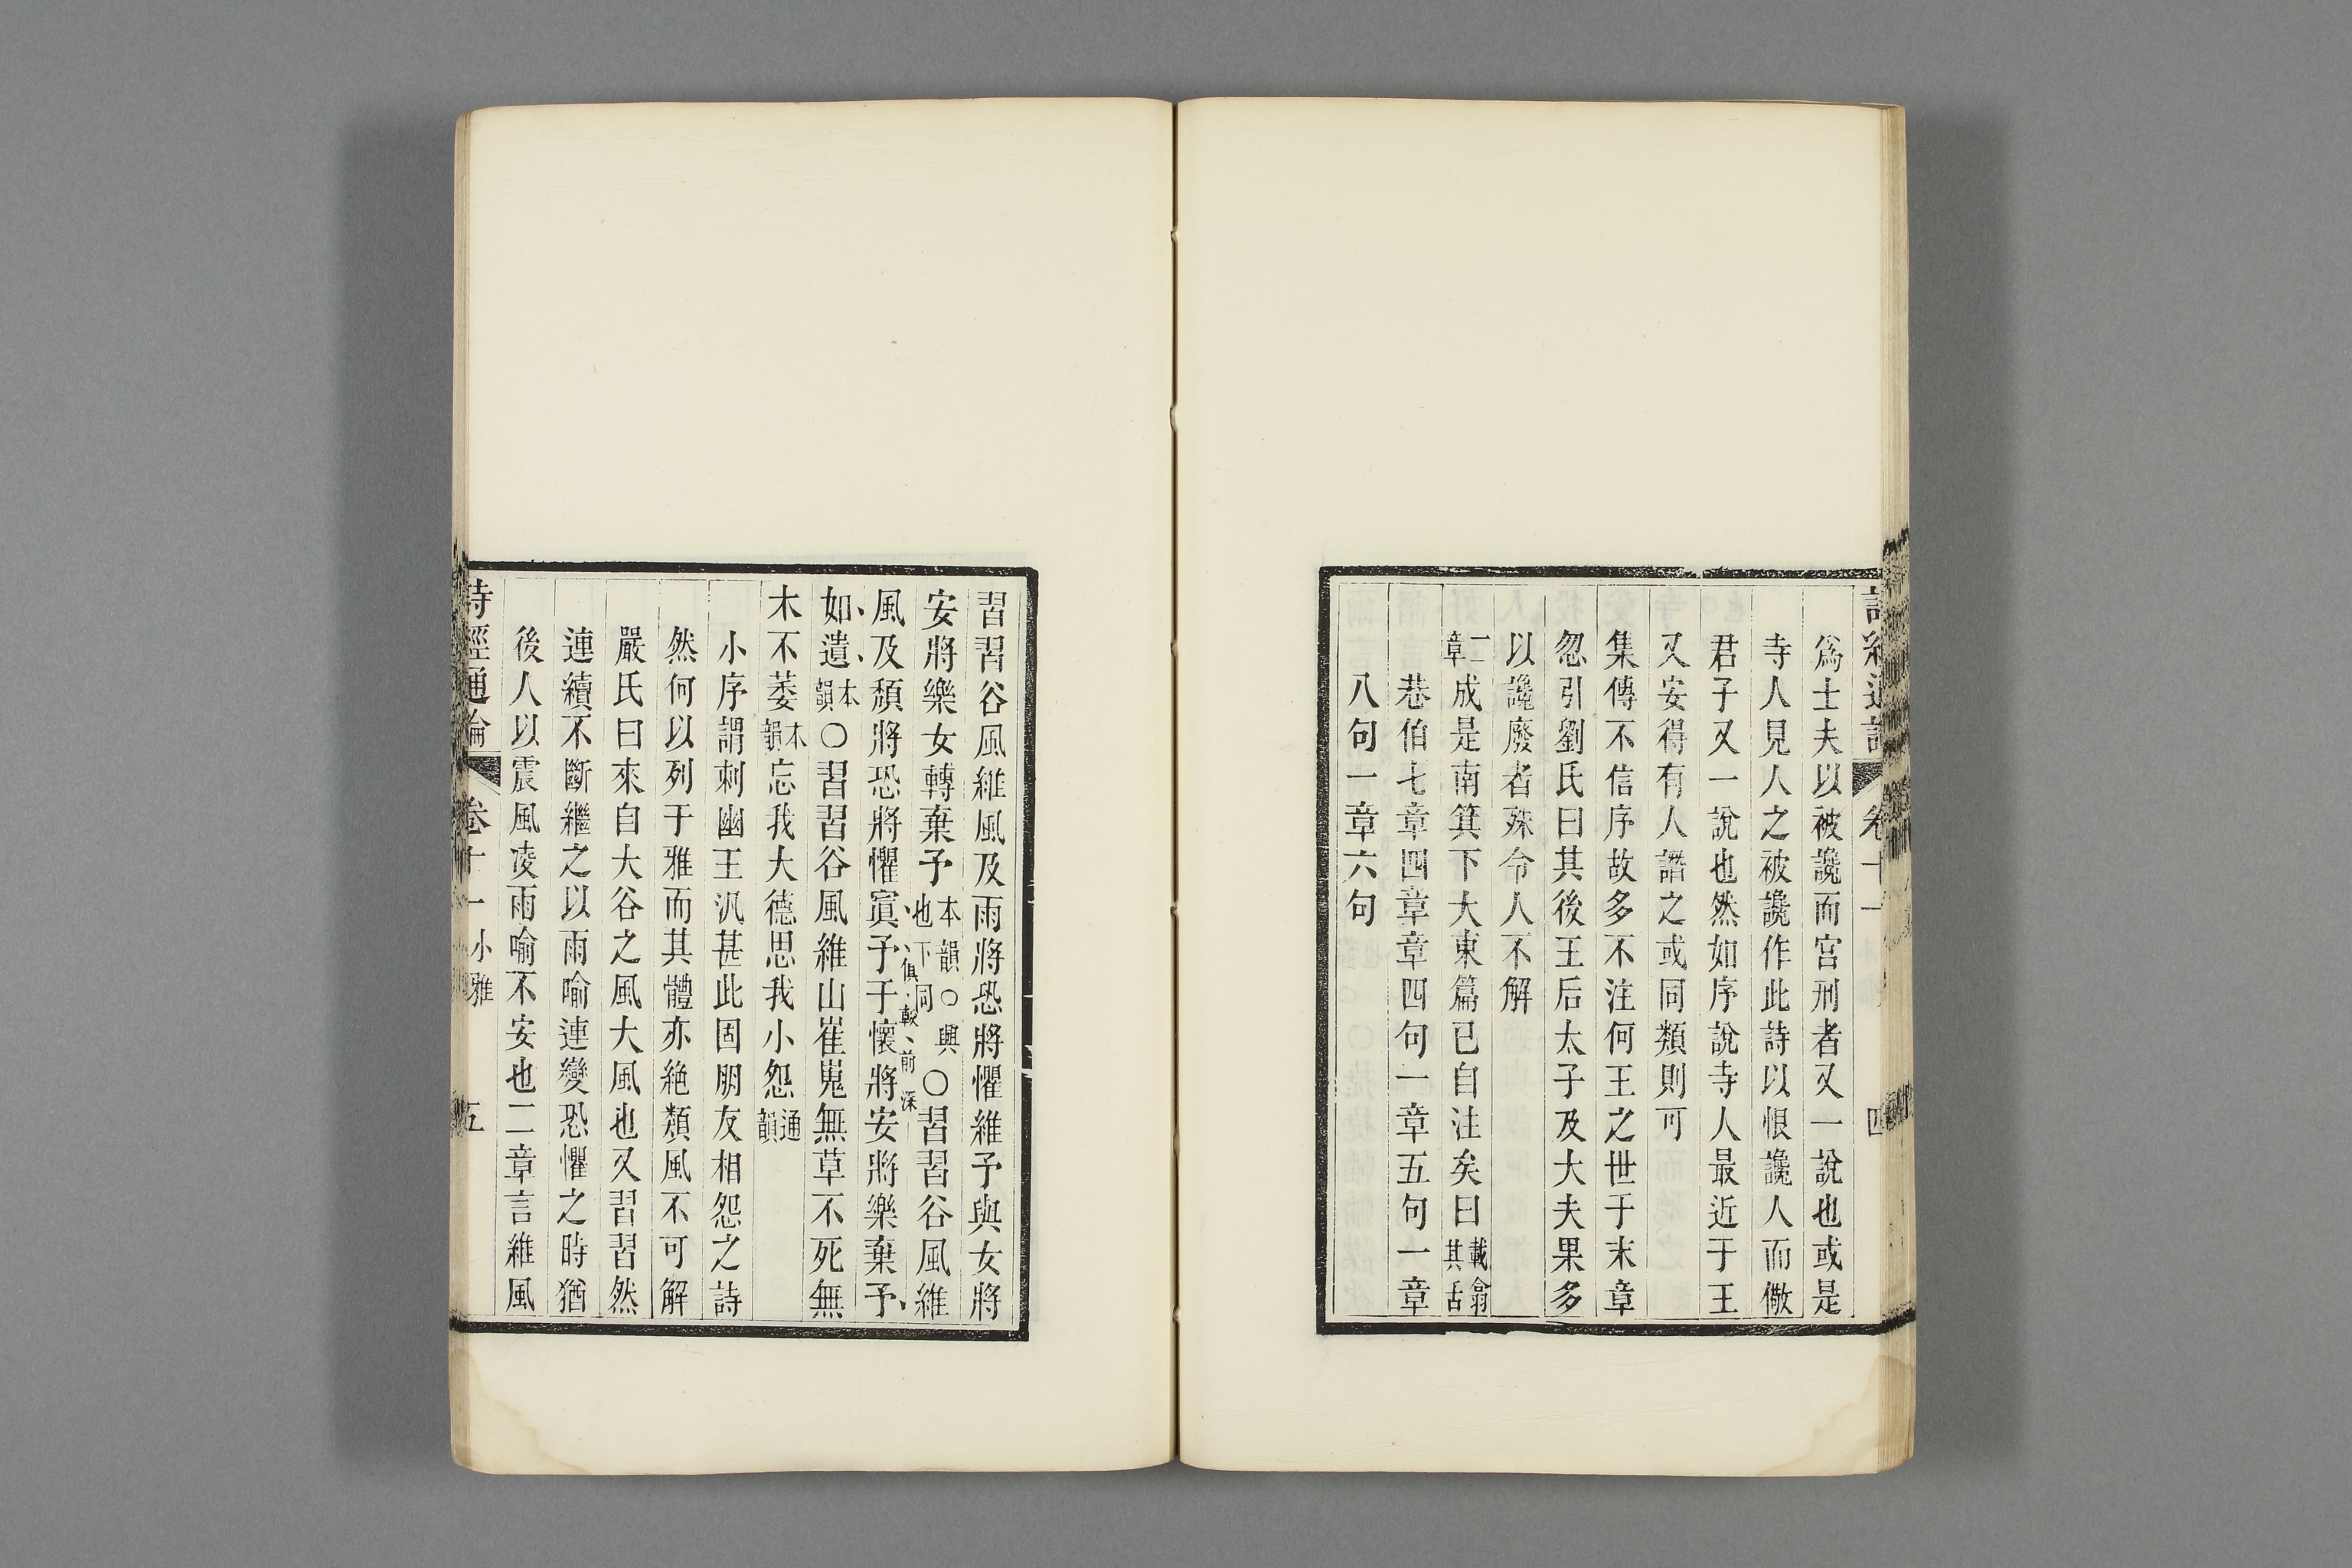 爲士夫以被讒而宮刑者又一說也或是
寺人見人之被讒作此詩以恨讒人而儆
君子又一說也然如序說寺人最近于王
又安得有人譖之或同類則可
集傳不信序故多不注何王之世于末章
忽引劉氏曰其後王后太子及大夫果多
以讒廢者殊令人不解
二章成是南箕下大東篇已自注矣曰載翕其舌
巷伯七章四章章四句一章五句一章
八句一章六句
習習谷風維風及雨將恐將懼維予與女將
安將樂女轉棄予本韻○興也下同○習習谷風維
風及頹將恐將懼寘予于懷將安將樂棄予
俱較前深
如遺本韻○習習谷風維山崔嵬無草不死無
木不萎本韻忘我大德思我小怨通韻
小序謂刺幽王汎甚此固朋友相怨之詩
然何以列于雅而其體亦絶類風不可解
嚴氏曰來自大谷之風大風也又習習然
連續不斷繼之以雨喻連變恐懼之時猶
後人以震風凌雨喻不安也二章言維風
詩經通論 卷十一 小雅 五